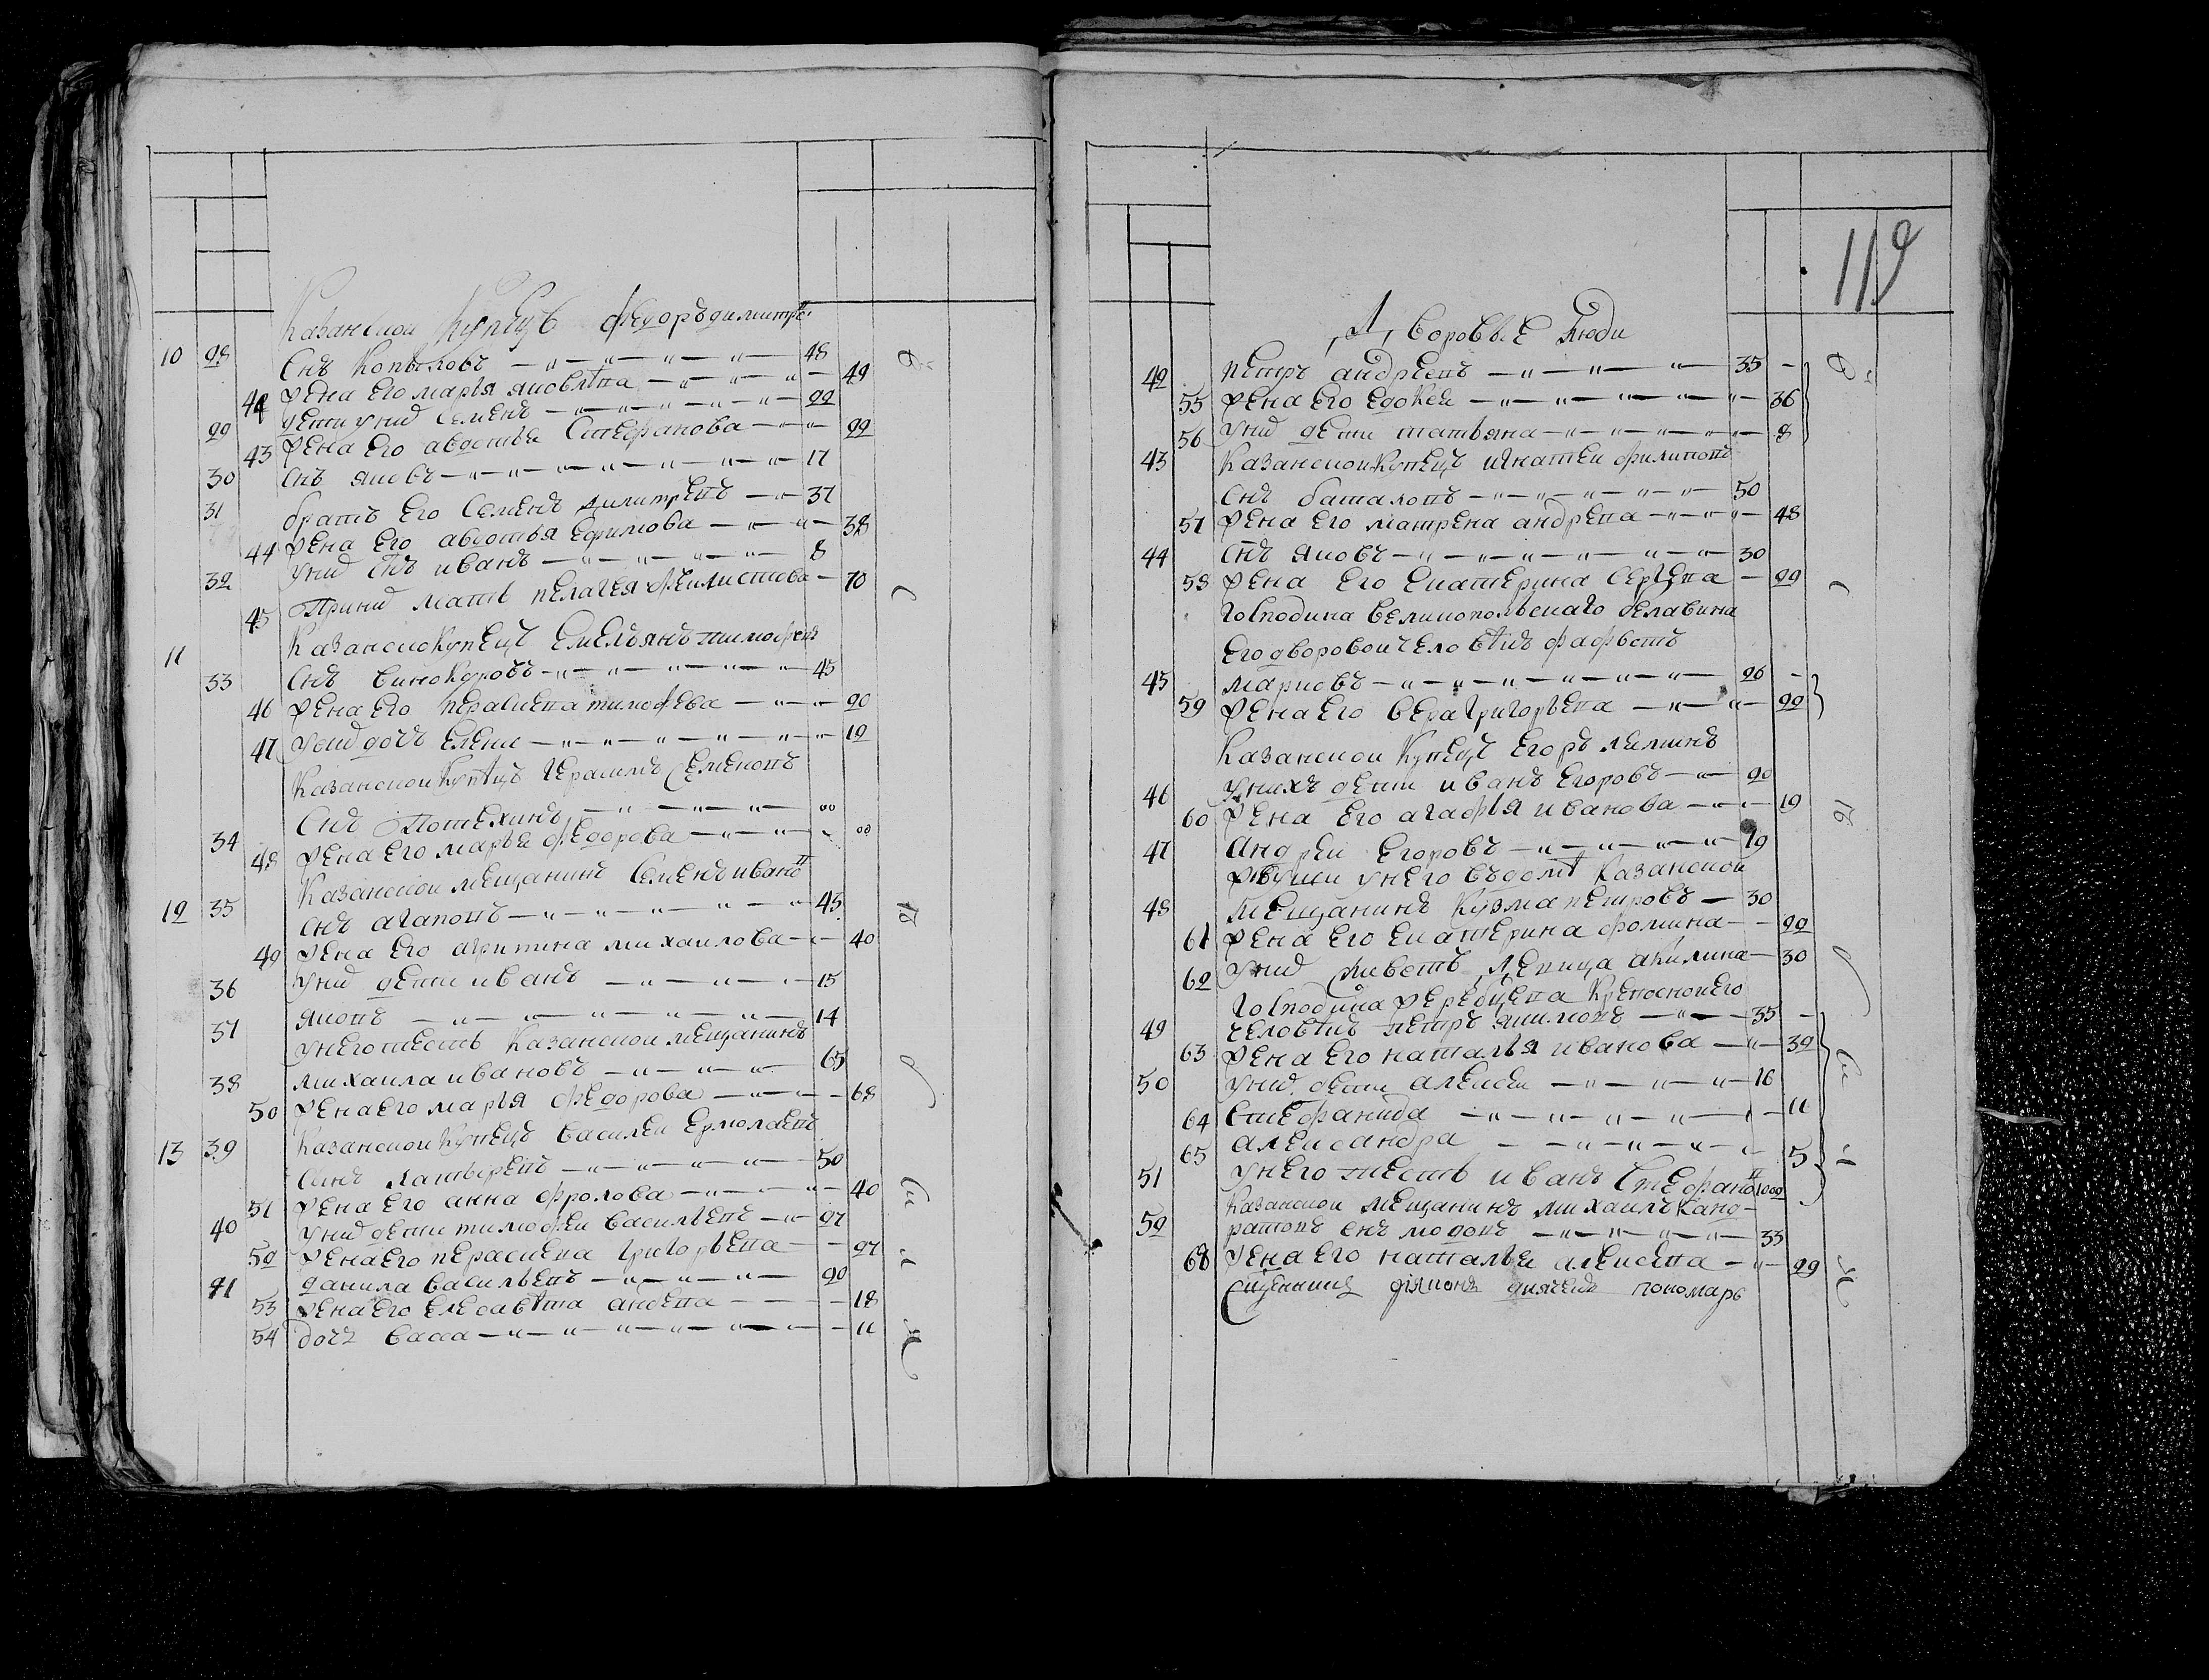 Казанской купецъ федоръ димитре
10 28 Снъ Копыловъ 48
42 жена его марья яковлѣва 49
29 дети унид Семенъ 22
43 жена его авдотья Стефанова 22
30 Снъ яковъ 17
31 братъ его Семенъ димитревъ 37
44 жена его авдотья ефимова 38
32 унид Снъ иванъ 8
45 При нид мать пелагея 70
11 Казанско купецъ Емельянъ тимофеевъ
33 Снъ винокуровъ 45
46 жена его парасковья тимофева 20
47 унид дочь елена 12
Казанской купецъ герасимъ Семеновъ
34 Снъ Потехинъ 00
48 жена его марья федорова 00
Казанской мещанинъ Семенъ ивано
12 35 Снъ агаповъ 45
49 жена его агрипина михаилова 40
36 унид дети иванъ 15
37 яковъ 14
у него тесть Казанской мещанинъ
38 михаила ивановъ 65
50 жена его марья федорова 68
13 39 Казанской купецъ василеи ермолаевъ
Снъ 50
51 жена его анна фролова 40
40 унид дети тимофеи васильевъ 27
52 жена его парасковья григорьева 27
41 данила васильевъ 20
53 жена его елесавѣта 18
54 дочь васса 11
119
Дворовые люди
42 петръ андреевъ 35
55 жена его 36
56 унид дети татьяна 8
43 Казанской купецъ игнатеи филиповъ
Снъ баталовъ 50
57 жена его матрена андрева 48
44 Снъ яковъ 30
58 жена его екатерина Сергева 29
Господина великопольскаго
Его дворовой человѣкъ
45 марковъ 26
59 жена его вера григорьева 22
Казанской купецъ Егоръ
46 у нихъ дети иванъ Егоровъ 20
60 жена его агафья иванова 19
47 Андреи Егоровъ 19
живущи у него въ домѣ Казанской
48 мещанинъ Кузма петровъ 30
61 жена его екатерина фомина 22
62 унид живетъ девица акилина 30
Господина жеребцева крепосной его
49 человѣкъ петръ 35
63 жена его наталья иванова 32
50 унид дети алексеи 16
64 Стефанида 11
65 александра 5
51 у него тесть иванъ Стефано 1000
Казанской мещанинъ михаилъ Канд-
52 ратовъ снъ 33
68 жена его наталья алексева 29
Сщенникъ діяконъ дьячекъ пономарь